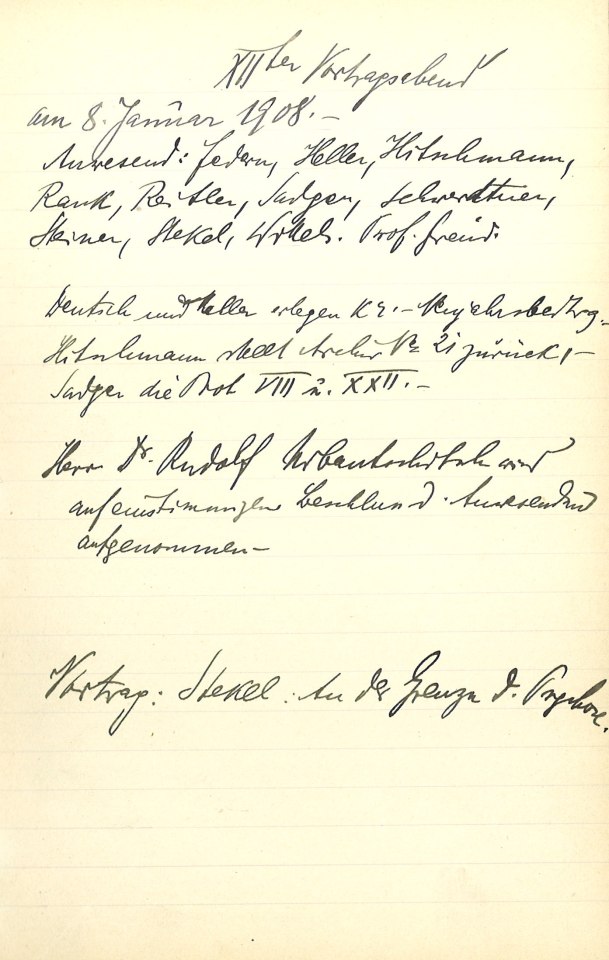 XIIter Vortragsabend
am 8. Januar 1908.–
Anwesend: Federn, Heller, Hitschmann,
Rank, Reitler, Sadger, Schwerdtner,
Steiner, Stekel, Wittels. Prof. Freud.
Deutsch und Heller erlegen K
Hitschmann stellt Archiv № 21 zurück,–
Sadger die Prot VIII u. XXII.–
Herr Dr. Rudolf Urbantschitsch wird
auf einstimmigen Beschluss d. Anwesenden
aufgenommen–
Vortrag: Stekel: An der Grenze d. Psychose.